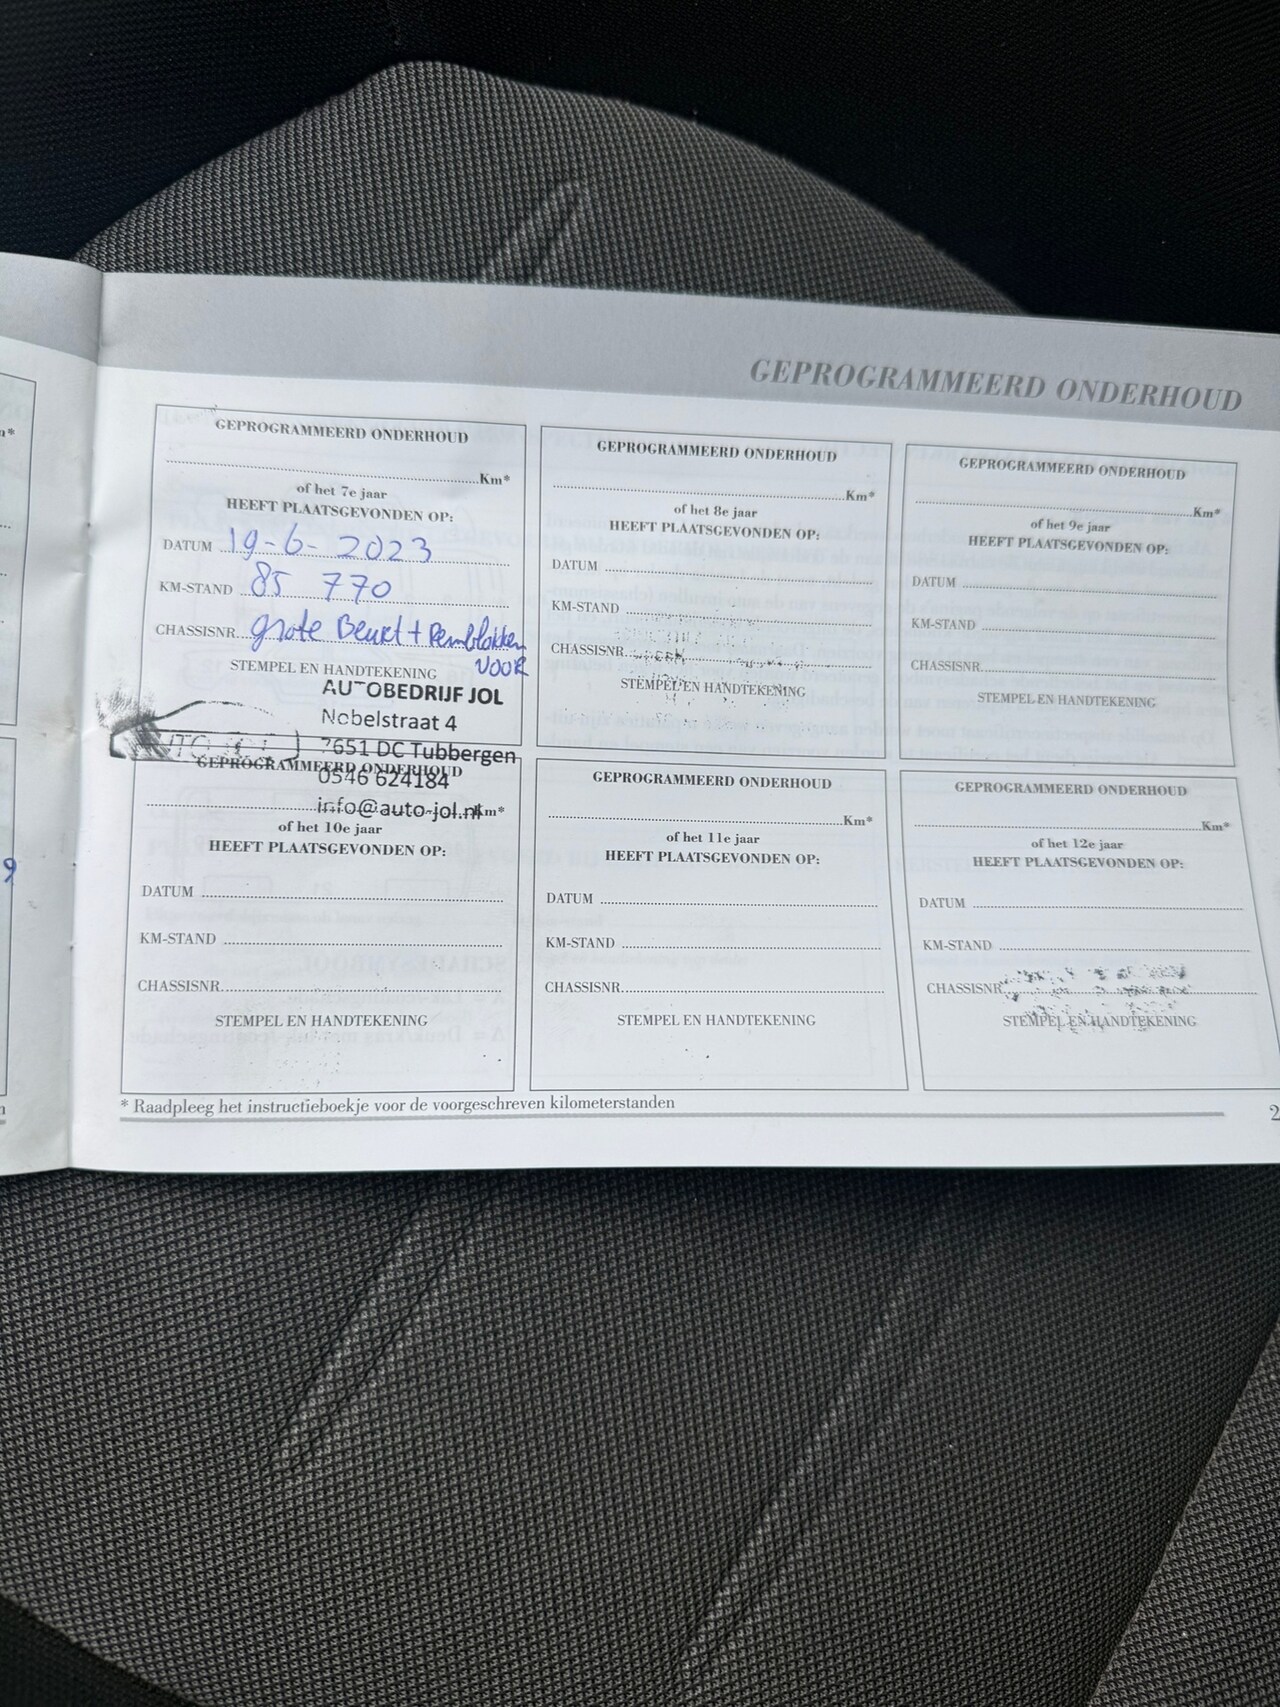 GEPROGRAMMEERD ONDERHOUD
GEPROGRAMMEERD ONDERHOUD
Km*
of het 7e jaar
HEEFT PLAATSGEVONDEN OP:
DATUM 19-6-2023
KM-STAND 85 770
CHASSISNR. grote Beurt + Remblokken
VOOR
STEMPEL EN HANDTEKENING
AUTOBEDRIJF JOL
Nobelstraat 4
7651 DC Tubbergen
0546 624184
info@auto-jol.nl
GEPROGRAMMEERD ONDERHOUD
Km*
of het 8e jaar
HEEFT PLAATSGEVONDEN OP:
DATUM
KM-STAND
CHASSISNR.
STEMPEL EN HANDTEKENING
GEPROGRAMMEERD ONDERHOUD
Km*
of het 9e jaar
HEEFT PLAATSGEVONDEN OP:
DATUM
KM-STAND
CHASSISNR.
STEMPEL EN HANDTEKENING
GEPROGRAMMEERD ONDERHOUD
Km*
of het 10e jaar
HEEFT PLAATSGEVONDEN OP:
DATUM
KM-STAND
CHASSISNR.
STEMPEL EN HANDTEKENING
GEPROGRAMMEERD ONDERHOUD
Km*
of het 11e jaar
HEEFT PLAATSGEVONDEN OP:
DATUM
KM-STAND
CHASSISNR.
STEMPEL EN HANDTEKENING
GEPROGRAMMEERD ONDERHOUD
Km*
of het 12e jaar
HEEFT PLAATSGEVONDEN OP:
DATUM
KM-STAND
CHASSISNR.
STEMPEL EN HANDTEKENING
* Raadpleeg het instructieboekje voor de voorgeschreven kilometerstanden